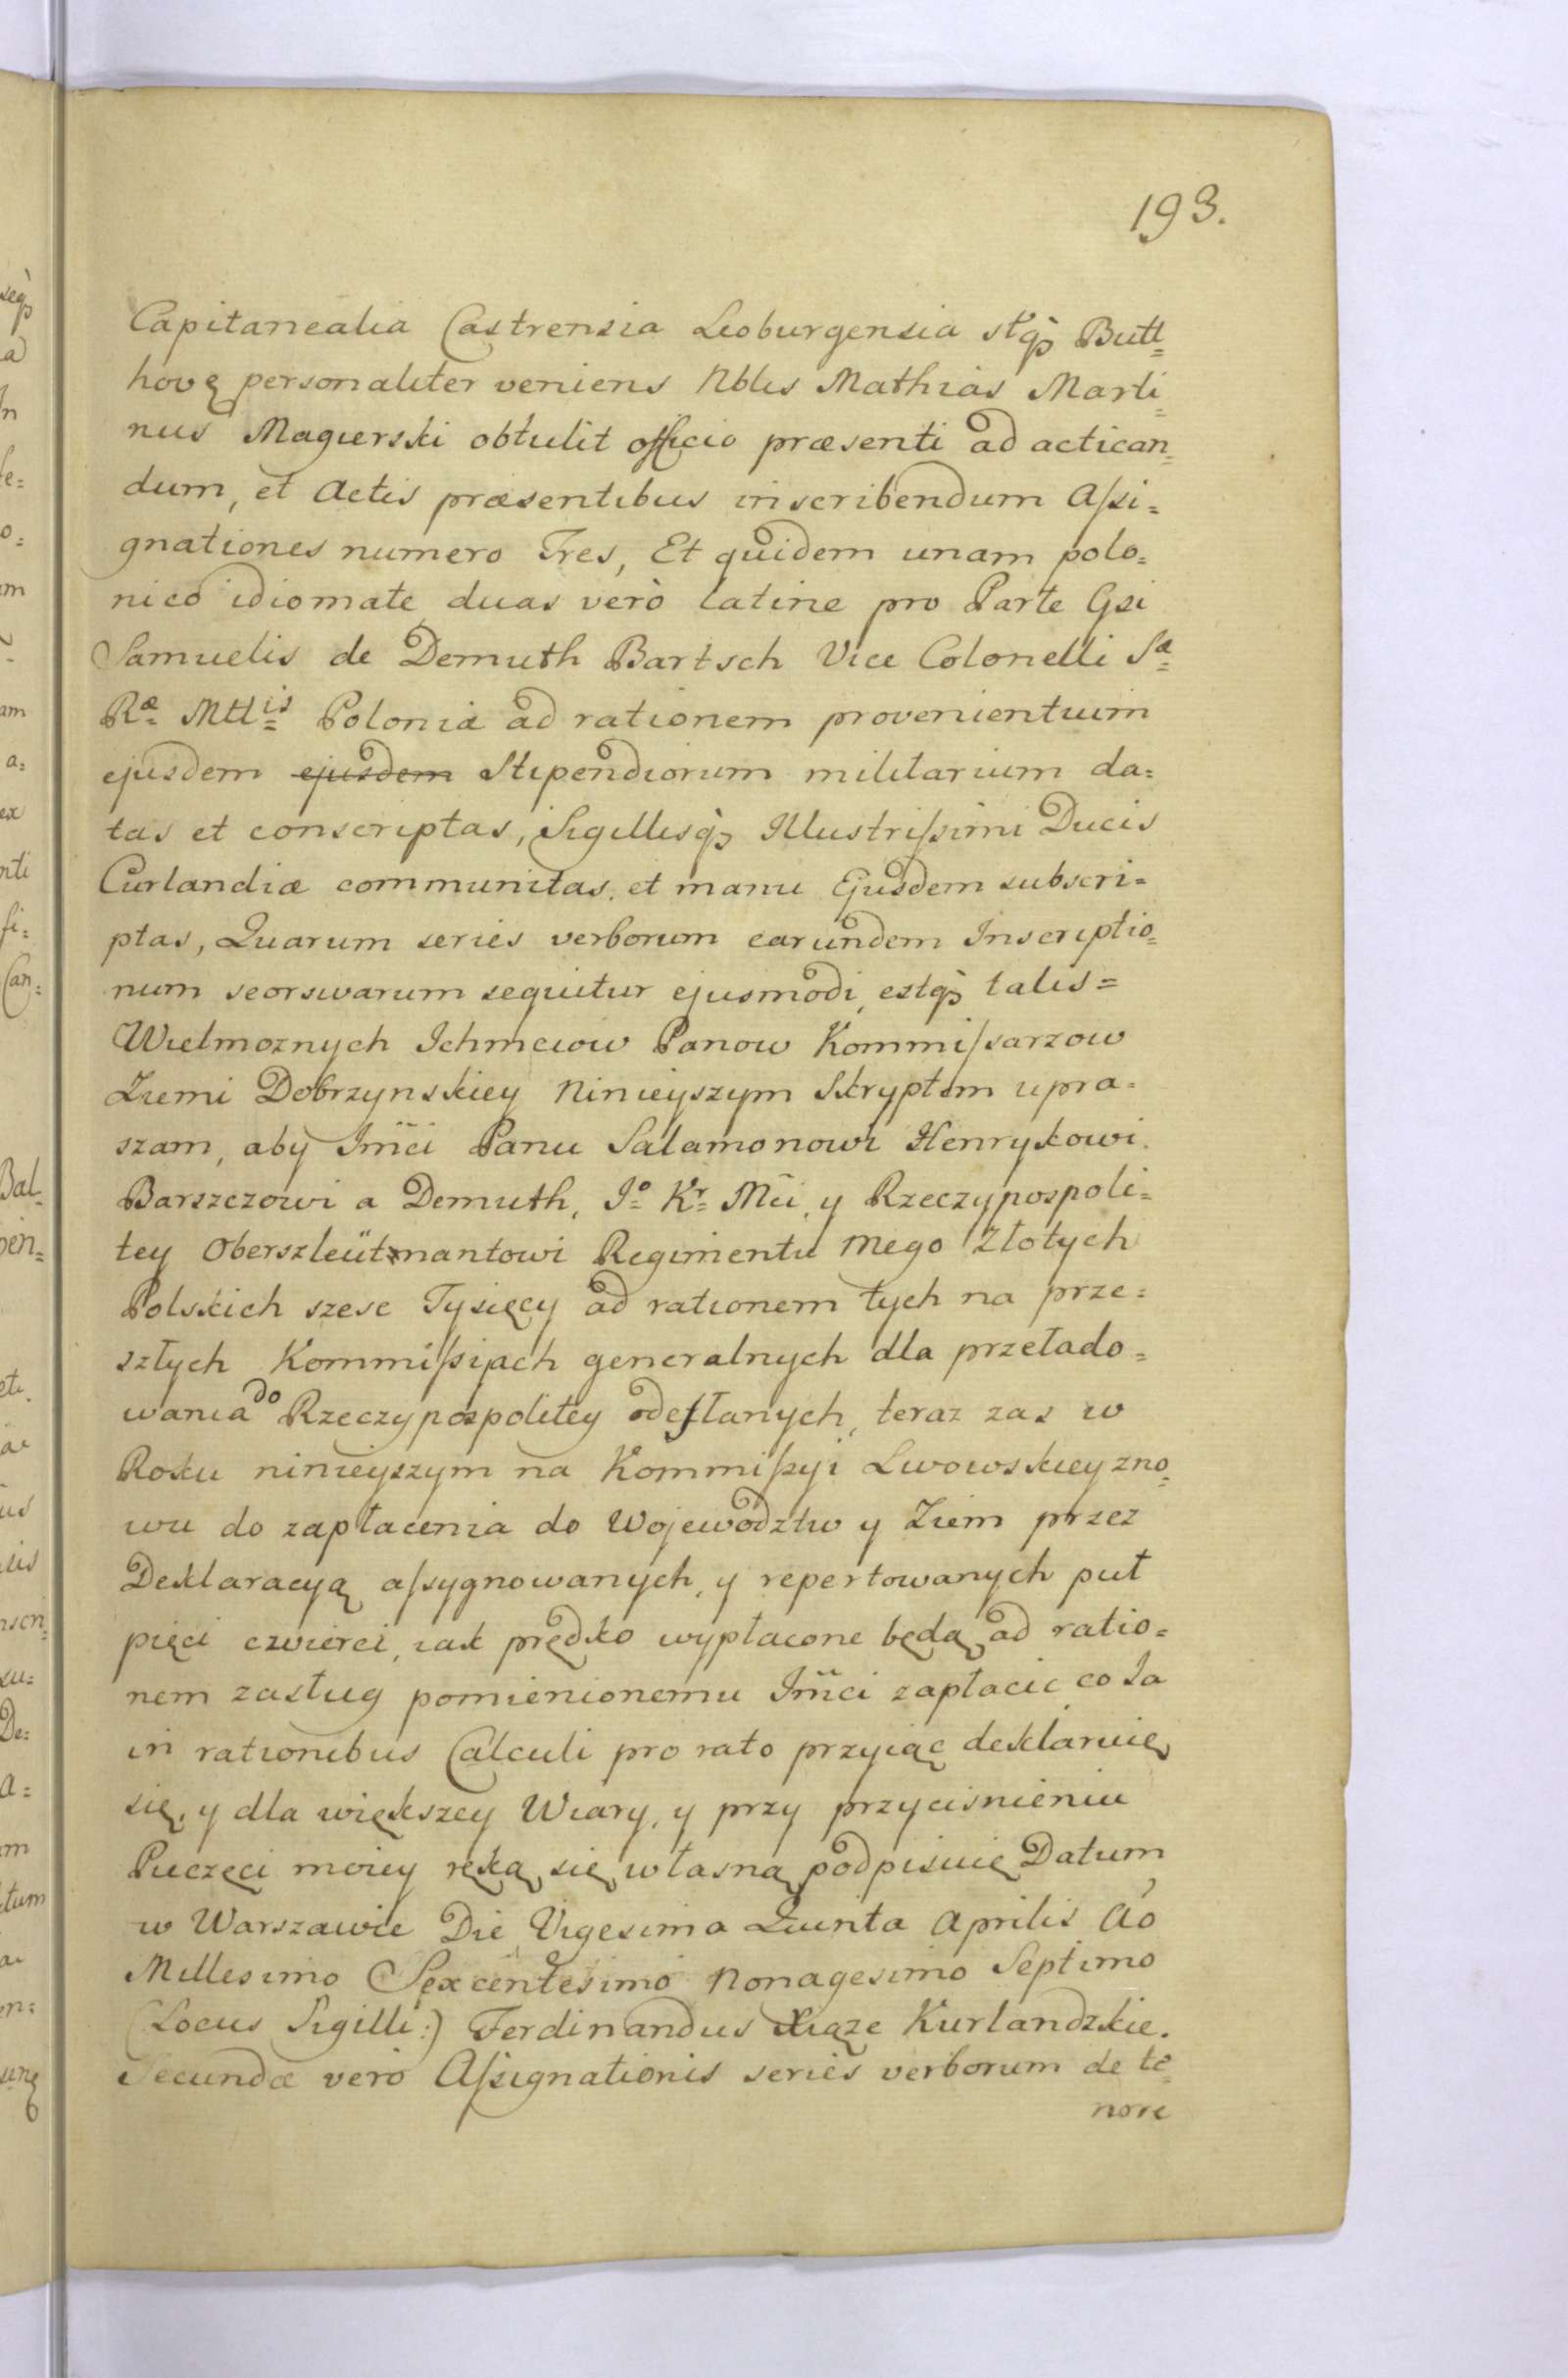 193.
Capitanealia Castrensia Leoburgensia stq₃ Butt=
hovę personaliter veniens Nbles Mathias Marti=
nus Magierski obtulit officio præsenti ad actican=
dum, et Actis præsentibus inscribendum Aſsi=
gnationes numero Tres, Et quidem unam polo=
nico idiomate duas verò latine pro Parte Gsi
Samuelis de Demuth Bartsch Vice Colonelli Sæ
Ræ Mttis Poloniæ ad rationem provenientium
ejusdem ejusdem Stipendiorum militarium da=
tas et conscriptas, Sigillisq₃ Illustriſsimi Ducis
Curlandiæ communitas, et manu Ejusdem subscri=
ptas, Quarum series verborum earundem Inscriptio=
num seorsivarum sequitur ejusmodi, estq₃ talis=
Wielmoznych Ichmciow Panow Kommiſsarzow
Ziemi Dobrzynskiey Ninieyszym Skryptem upra=
szam, aby Jmci Panu Salamonowi Henrykowi
Barszczowi a Demuth, Jo Kr Mci, y Rzeczypospoli=
tey Oberszleütnantowi Regimentu mego Złotych
Polskich szesc Tysięcy ad rationem tych na prze=
szłych Kommiſsijach generalnych dla przełado=
wania do Rzeczypospolitey odesłanych, teraz zas w
Roku ninieyszym na Kommiſsyi Lwowskiey zno=
wu do zapłacenia do Wojewodztw y Ziem przez
Deklaracyą aſsygnowanych, y repertowanych puł
pięci czwierci, iak prędko wypłacone będą ad ratio=
nem zasług pomienionemu Jmci zapłacic co Ia
in rationibus Calculi pro rato przyiąc deklaruię
się, y dla większey Wiary, y przy przycisnieniu
Pieczęci moiey ręką się własną podpisuię Datum
w Warszawie Die Vigesima Quinta Aprilis Ao
Millesimo Sexcentesimo Nonagesimo Septimo
(Locus Sigilli:) Ferdinandus Xiąze Kurlandzkie.
Secundæ vero Aſsignationis series verborum de te=
nore